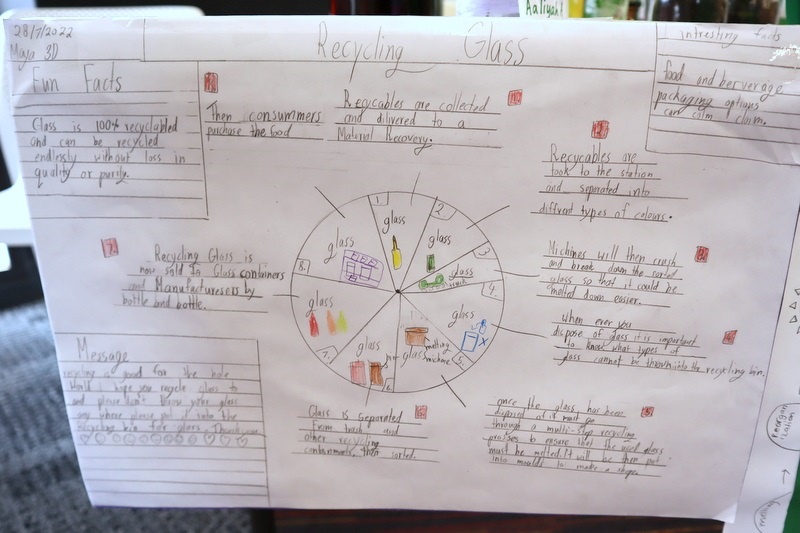 28/7/2022
Maja 3D
Recycling Glass
Fun Facts
Glass is 100% recyclabled
and can be recycled
endlessly without loss in
quality or purity.
Then consummers
purchase the food
Recycables are collected
and dilivered to a
Material Recovery.
Intresting facts
food and berverage
packaging options
can calm claim.
Recycables are
took to the station
and separated into
diffrent types of colours.
Machines will then crush
and break down the sorted
glass so that it could be
melted down easier.
when ever you
dispose of glass it is important
to know what types of
glass cannot be thrown into the recycling bin.
once the glass has been
disposed of it must go
through a multi-step recycling
to ensure that the used glass
must be melted. It will be then put
into moulds to make a shape.
Glass is separated
from trash and
other recycling
then sorted.
7.
Recycling Glass is
now sold to Glass containers
and Manufacturesers by
bottle and bottle.
Message
recycling is good for the hole
World i hope you recycle glass to
and please don't throw your glass
any where please put it into the
recycling bin for glass. Thank you
1.
glass
2.
glass
3.
glass
4.
glass
5.
glass
melting
machine
6.
glass
7.
glass
8.
glass
Aaliyah!